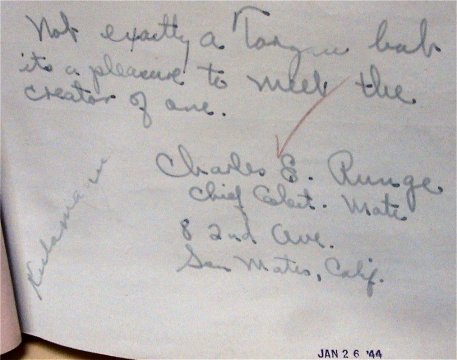 Not exactly a Tarzan but
its a pleasure to meet the
creator of one.
Charles E. Runge
Chief Mate
8 2nd Ave.
San Mateo, Calif.
JAN 26 '44